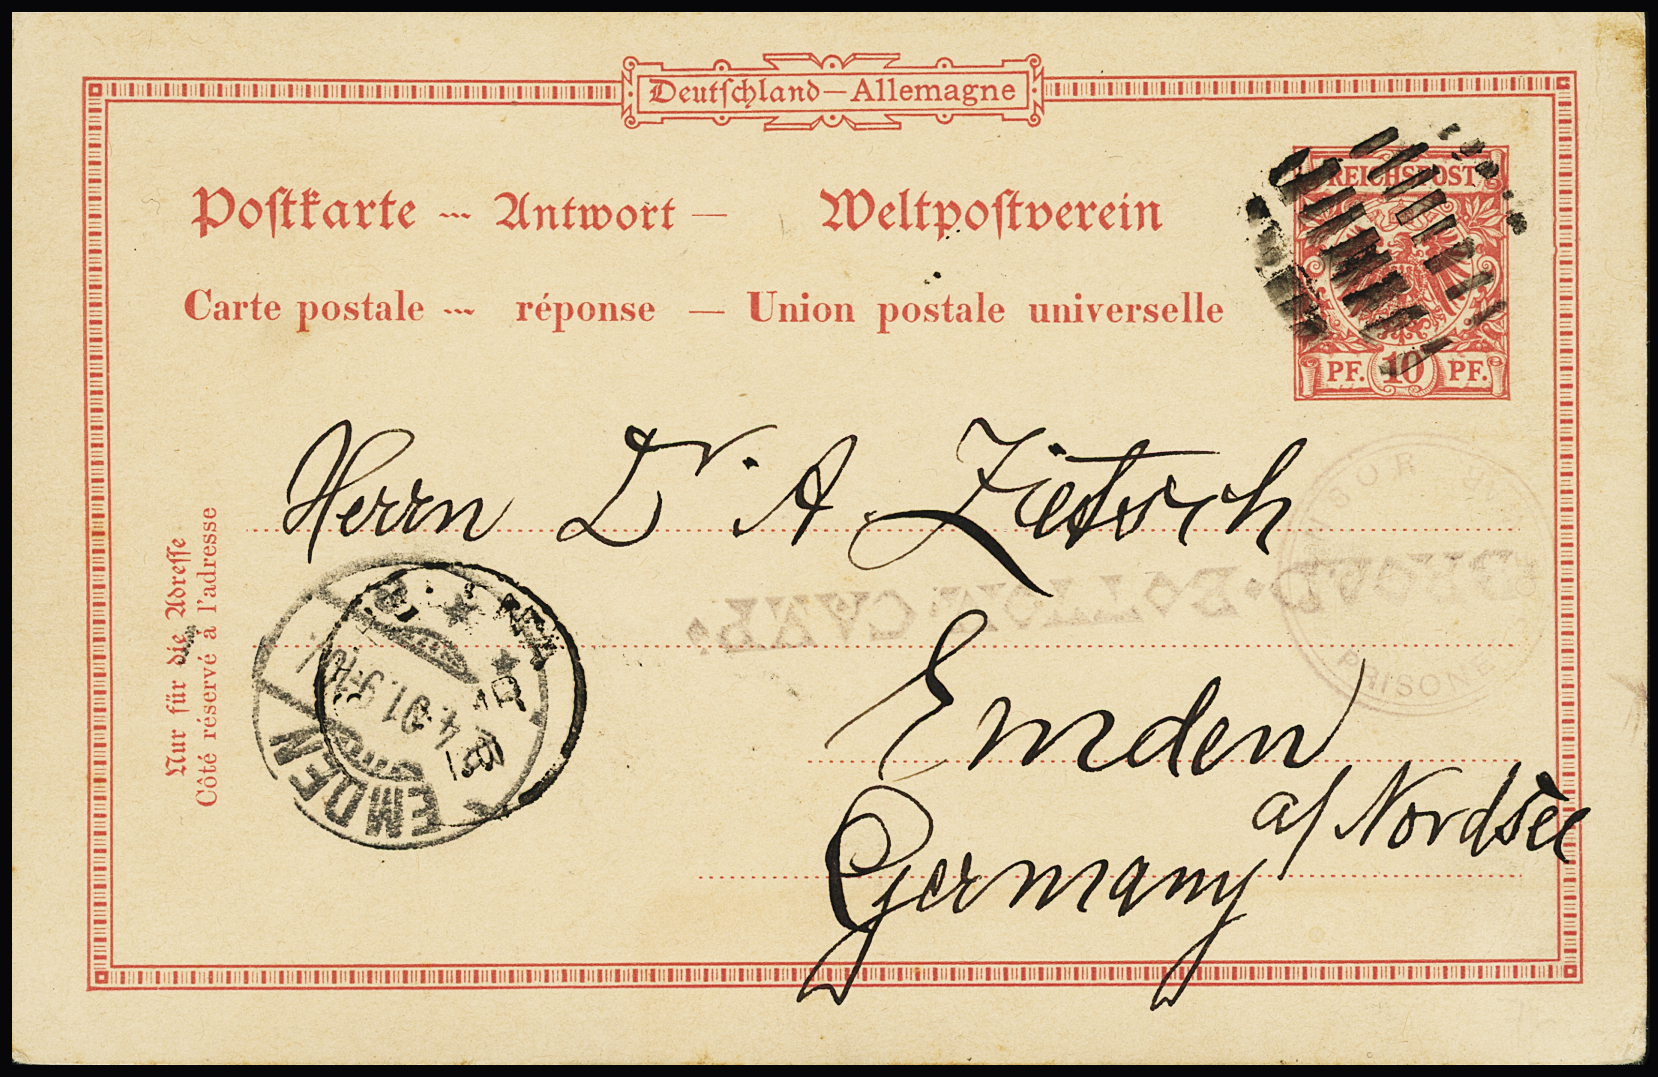 Deutſchland—Allemagne
REICHSPOST
Poſtkarte — Antwort — Weltpoſtverein
Carte postale — réponse — Union postale universelle
PF. 10 PF.
Herrn Dr. A. Zietsch
Emden
a/ Nordsee
Germany
Nur für die Adreſſe
Côté réservé à l'adresse
EMDEN
PRISONE